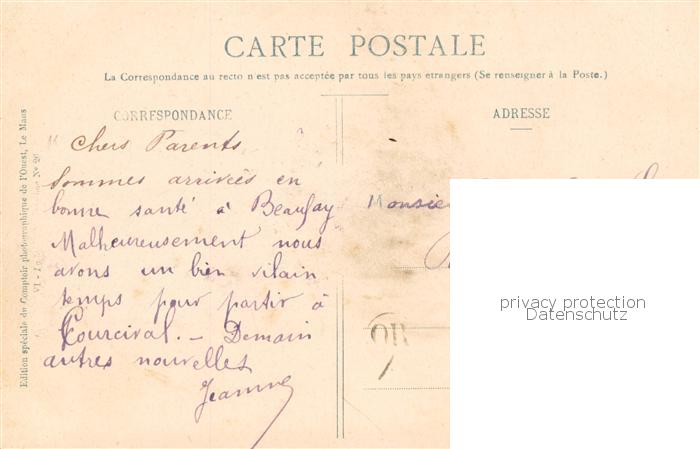 CARTE POSTALE
La Correspondance au recto n'est pas acceptée par tous les pays etrangers (Se renseigner à la Poste.)
CORRESPONDANCE
ADRESSE
Chers Parents
Sommes arrivées en
bonne santé à Beaufay
Malheureusement nous
avons un bien vilain
temps pour partir à
Courcival. — Demain
autres nouvelles
Jeanne
Monsie
OR
privacy protection
Datenschutz
Edition spéciale du Comptoir photographique de l'Ouest, Le Mans